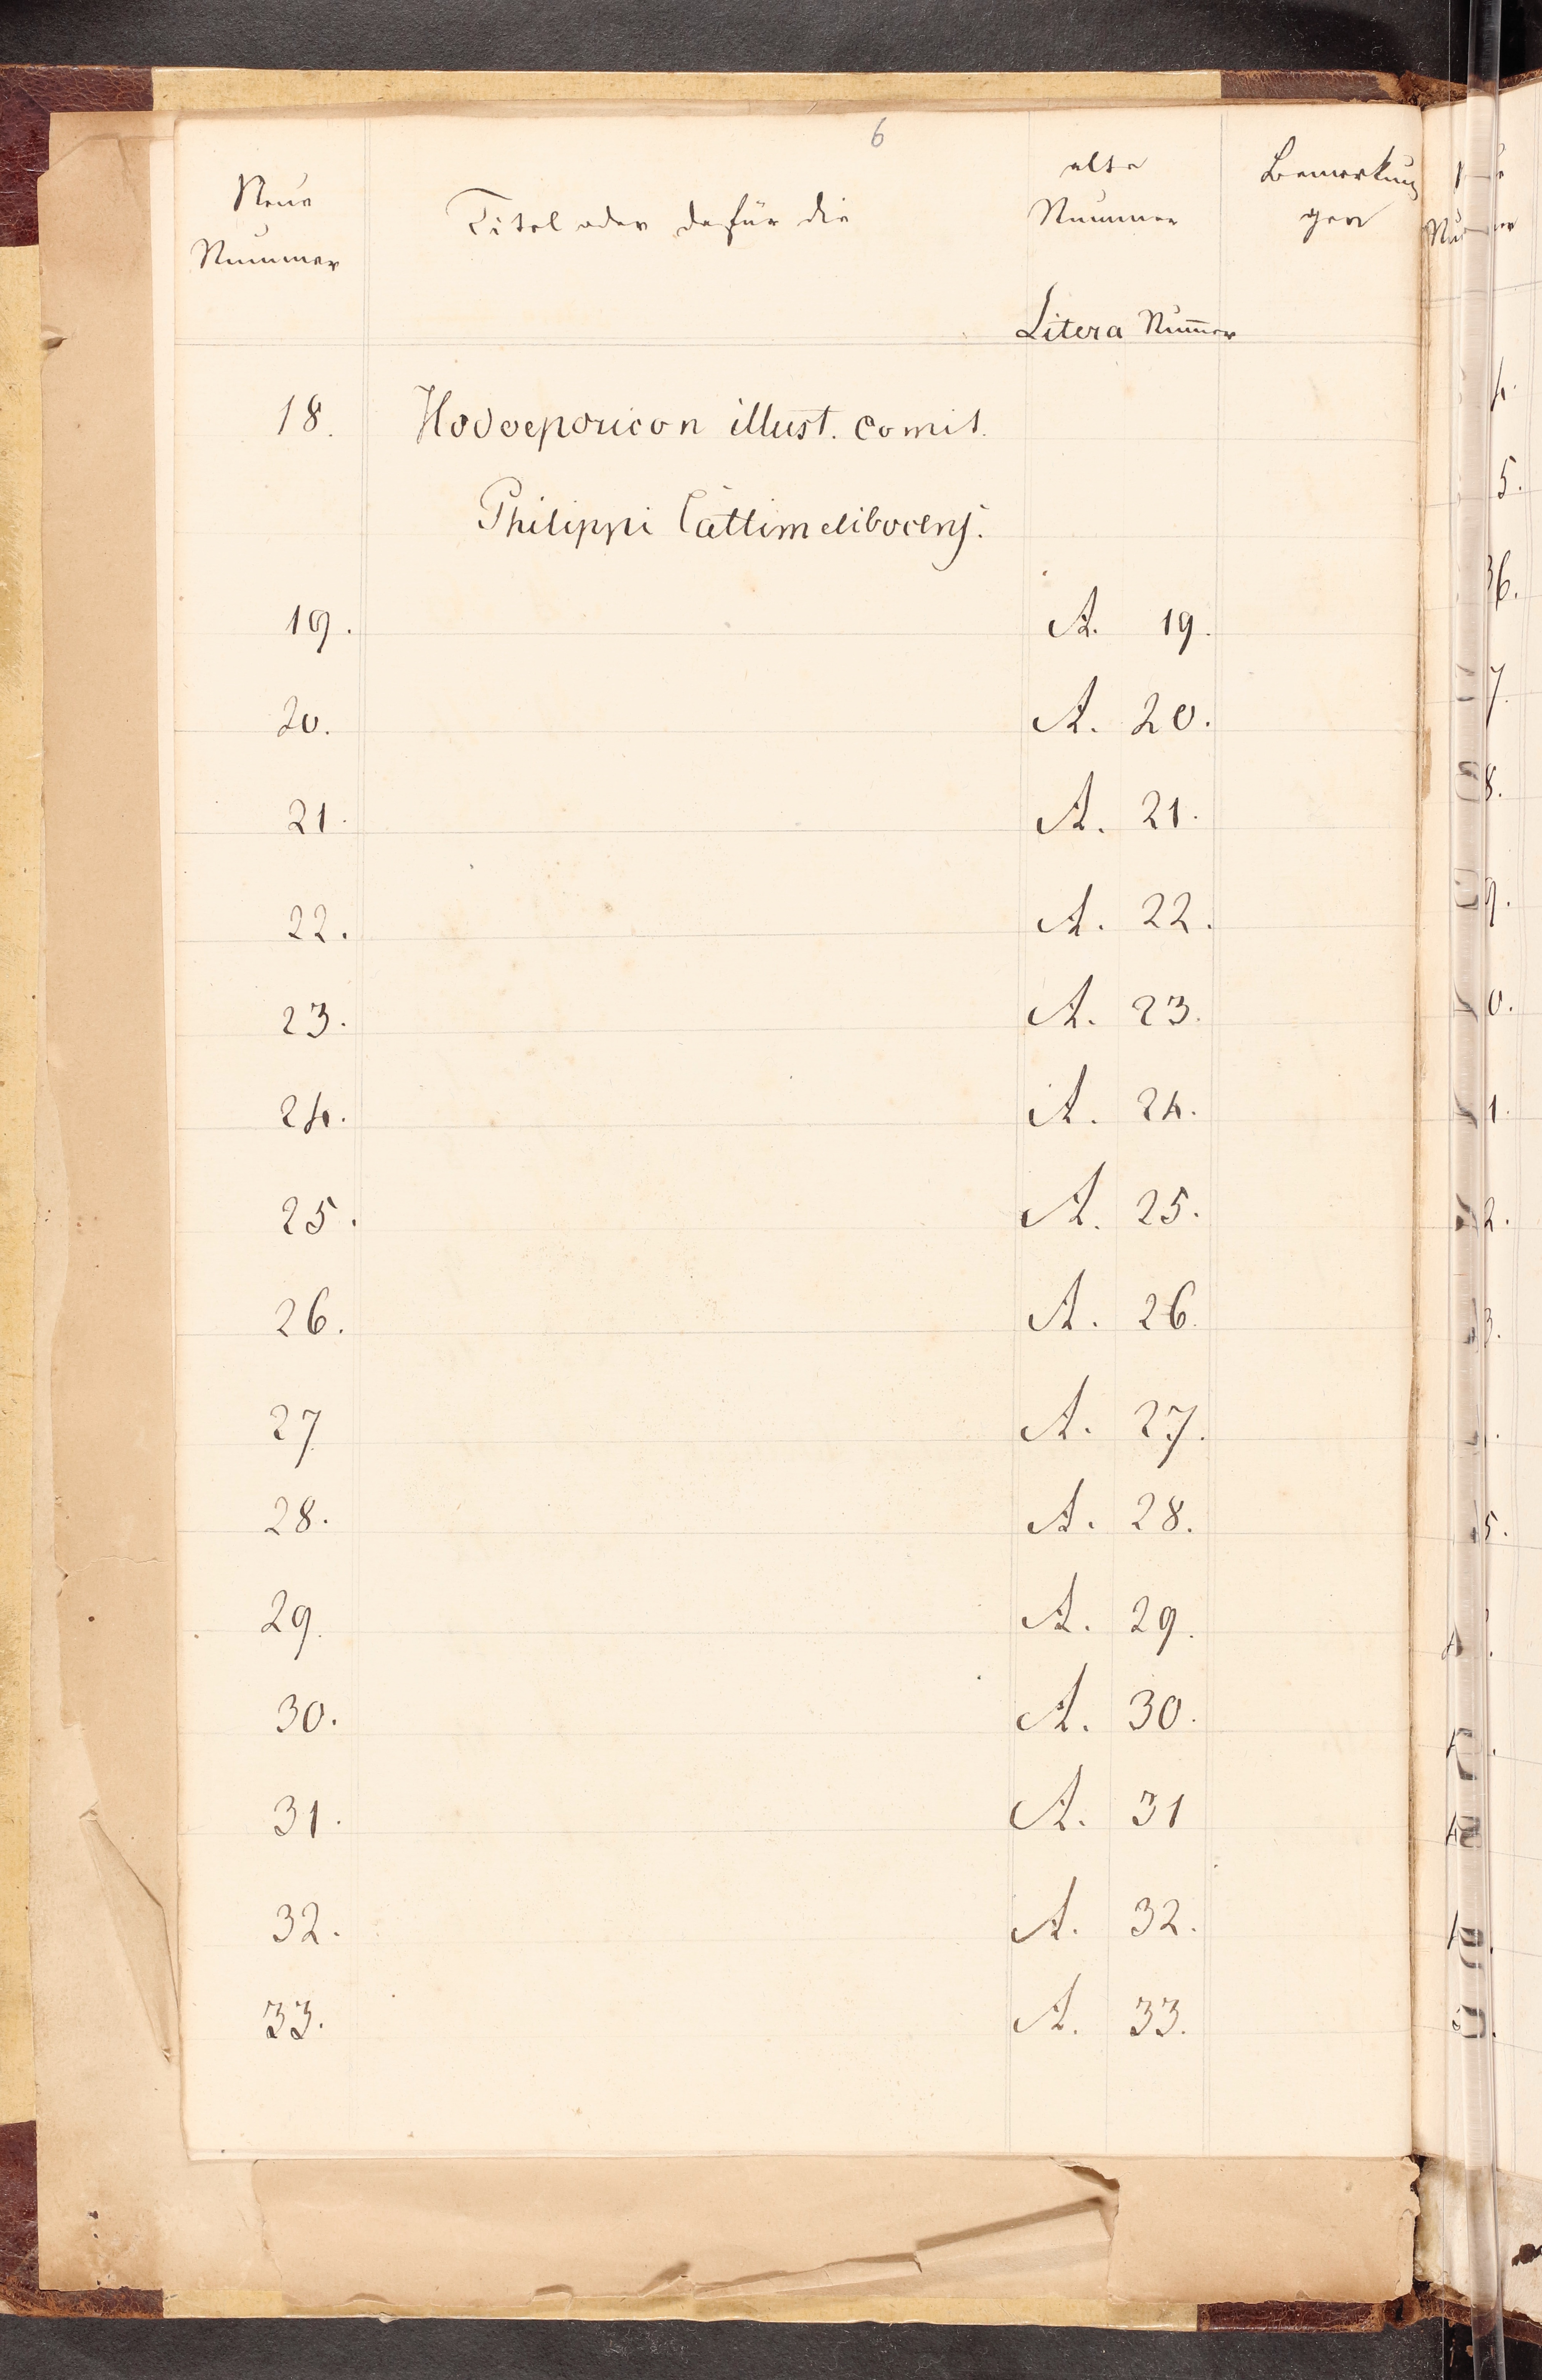 6
Neue Nummer
Titel oder dafür die
alte Nummer
Bemerkungen
Litera Numer
18. Hodoeporicon illust. comit.
Philippi Cattimelibocens.
19. A. 19.
20. A. 20.
21. A. 21.
22. A. 22.
23. A. 23.
24. A. 24.
25. A. 25.
26. A. 26.
27 A. 27.
28. A. 28.
29. A. 29.
30. A. 30.
31. A. 31
32. A. 32.
33. A. 33.